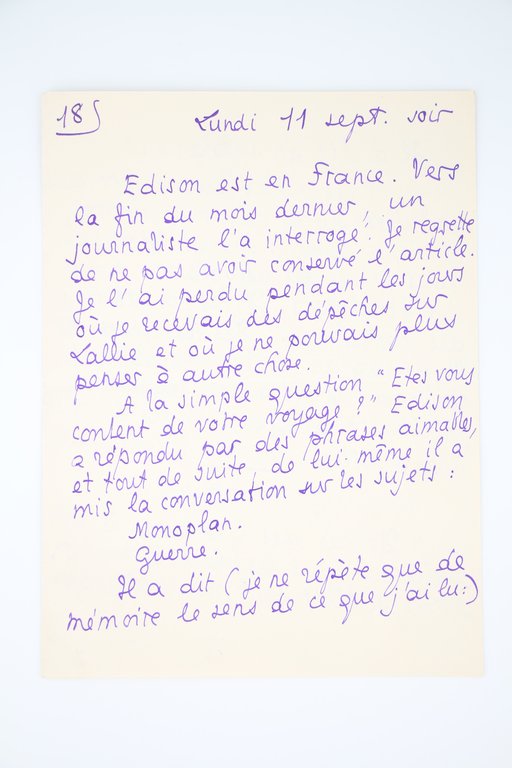 18
Lundi 11 sept. soir
Edison est en France. Vers
la fin du mois dernier, un
journaliste l'a interrogé. Je regrette
de ne pas avoir conservé l'article.
Je l'ai perdu pendant les jours
où je recevais des dépêches sur
Lallie et où je ne pouvais plus
penser à autre chose.
A la simple question "Etes vous
content de votre voyage ?" Edison
a répondu par des phrases aimables,
et tout de suite, de lui-même il a
mis la conversation sur les sujets :
Monoplan.
Guerre.
Il a dit (je ne répète que de
mémoire le sens de ce que j'ai lu:)